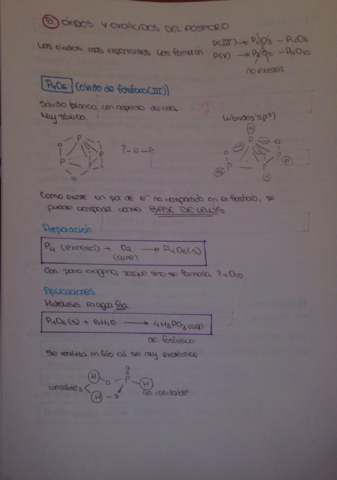 ⑤ ÓXIDOS Y OXOÁCIDOS DEL FÓSFORO
Los óxidos más importantes los forman P(III) → P₂O₃ - P₄O₆
P(V) → P₂O₅ - P₄O₁₀
no existen
P₄O₆ (óxido de fósforo(III))
Sólido blanco con aspecto de cera.
Muy tóxico.
híbridos sp³
Como existe un par de e⁻ no compartido en el fósforo, se
puede comportar como BASE DE LEWIS
Preparación
P₄ (exceso) + O₂ → P₄O₆(s)
(aire)
Con poco oxígeno, porque sino se formaría P₄O₁₀.
Aplicaciones
Hidrólisis en agua fría
P₄O₆(s) + 6H₂O → 4H₃PO₃(aq)
ác. fosforoso
Se realiza en frío al ser muy exotérmica
ionizables
H O P H
H O
no ionizable